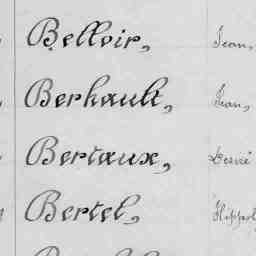 Belloir, Jean,
Berhault, Jean,
Bertaux, Désiré
Bertel,